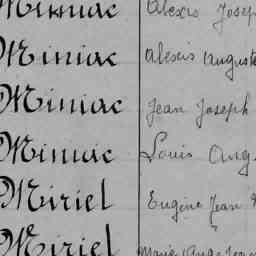 Miniac Alexis Josep
Miniac Alexis Auguste
Miniac Jean Joseph
Miniac Louis Aug
Miriel Eugène Jean
Miriel Marie Ange Jean